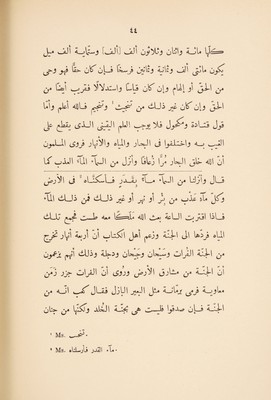 ٤٤
كلّها مائة واثنان وثلاثون ألف [ألف] وستّمائة ألف ميل
يكون مائتى ألف وثمانية وثمانين فرسخًا فإن كان حقًّا فهو وحى
من الحقّ أو إلهام وإن كان قياسًا واستدلالًا فقريب أيضًا من
الحقّ وإن كان غير ذلك من تنحيث¹ وتنجيم فالله أعلم وأمّا
قول قتادة ومكحول فلا يوجب العلم اليقينى الذى يقطع على
الغيب به واختلفوا فى البحار والمياه والأنهار فروى المسلمون
أنّ الله خلق البحار مُرًّا زُعاقًا وأنزل من السماء الماء العذب كما
قال وأنزلنا من السماء ماء بقَدَر فأسكنّاه² فى الأرض
وكلّ ماء عذب من بئر أو نهر أو غير ذلك فمن ذلك الماء
فاذا اقتربت الساعة بعث الله ملكًا معه طست فجمع تلك
المياه فردّها الى الجنّة وزعم أهل الكتاب أنّ أربعة أنهار تخرج
من الجنّة الفرات وسيحان وجيحان ودجلة وذلك أنهم يزعمون
أنّ الجنّة من مشارق الأرض وروى أنّ الفرات جزر زمن
معاوية فرمى برمّانة مثل البعير البازل فقال كعب انّه من
الجنّة فإن صدقوا فليست هى بجنّة الخلد ولكنّها من جنان
¹ Ms. تنحب.
² Ms. ماء القدر فأرسلناه.